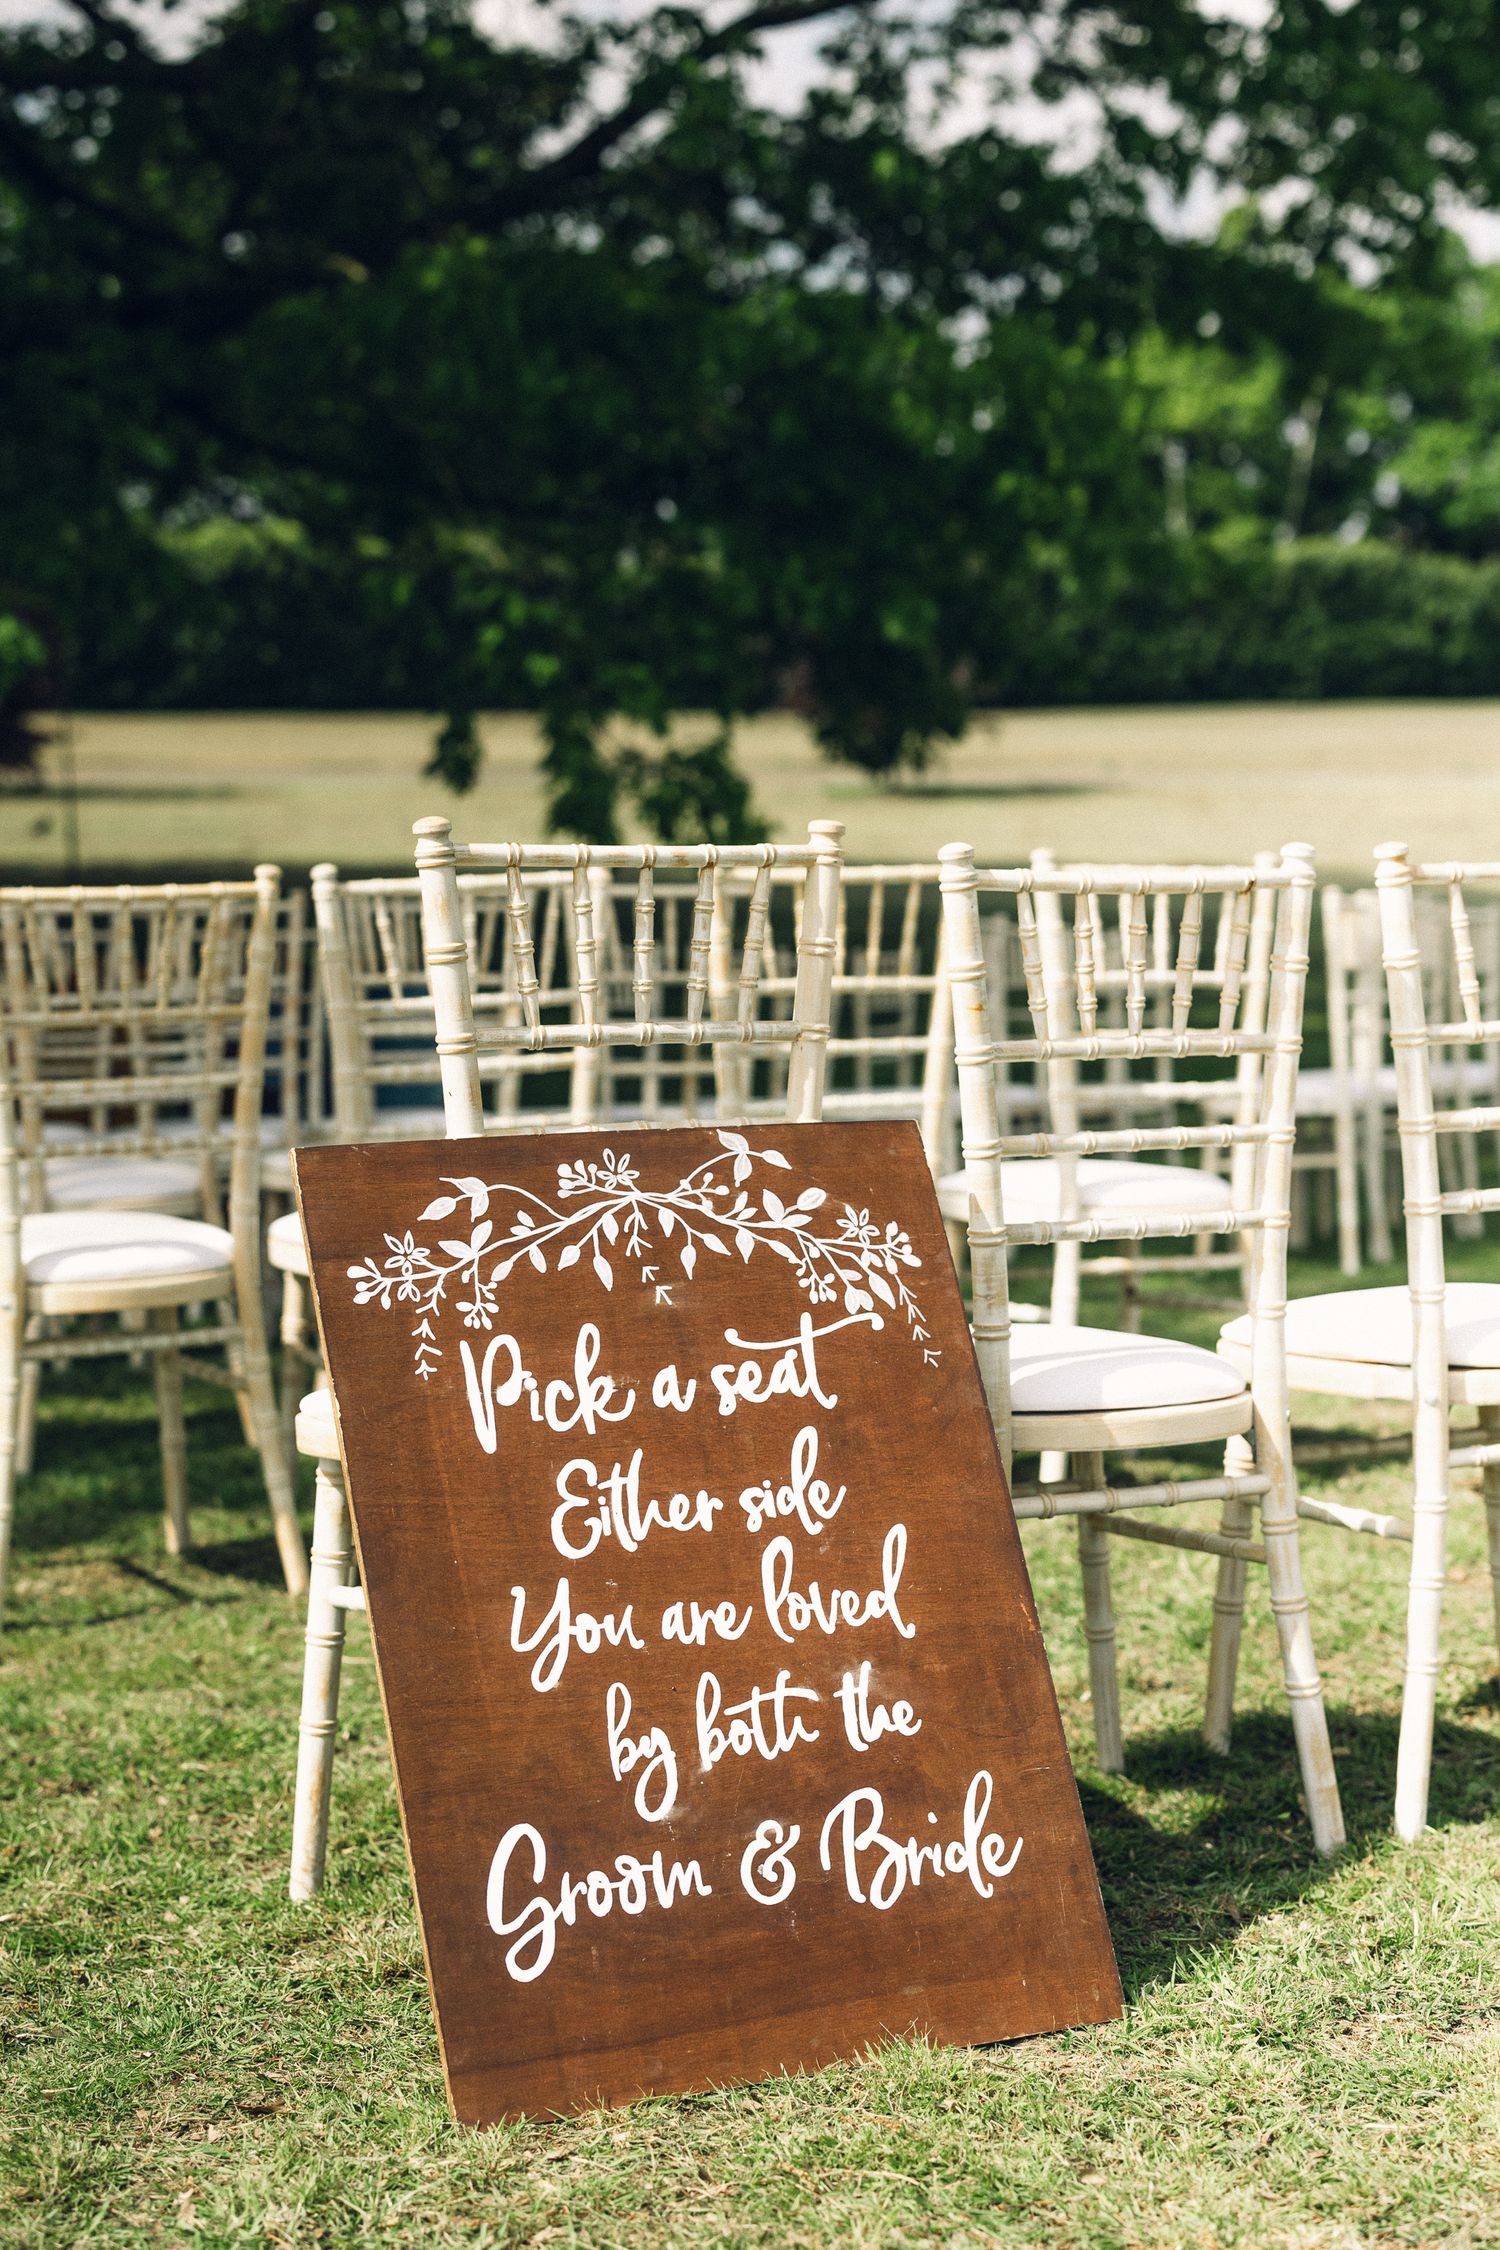 Pick a seat
Either side
You are loved
by both the
Groom & Bride